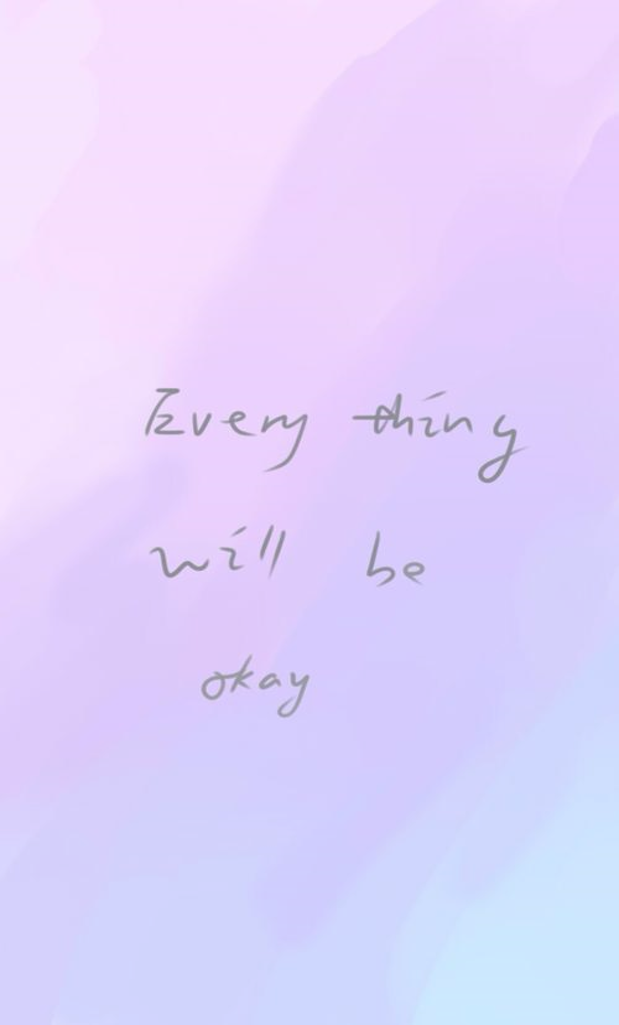 Every thing
will be
okay